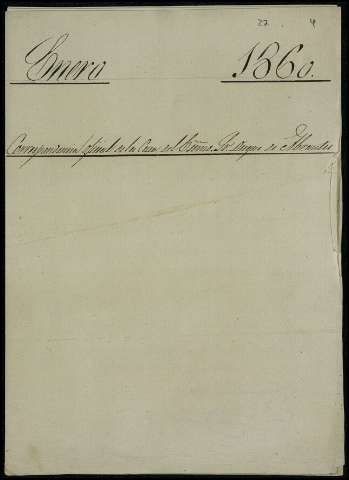 27. 4
Enero 1860.
Correspondencia oficial de la Casa del Excmo. Sr. Duque de Abrantes